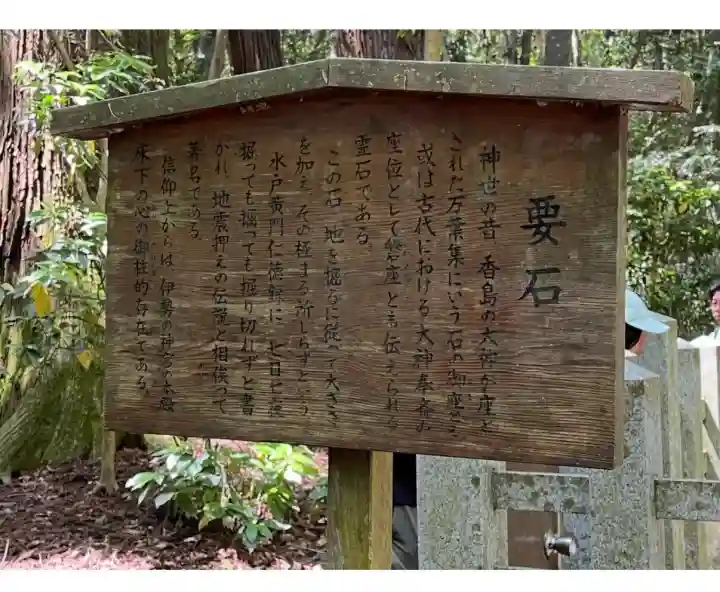 要石
神世の昔 香島の大神が座と
された万葉集にいう石の御座とも
或は古代における大神奉斎の
座位として磐座とも言伝えられる
霊石である。
この石 地を掘るに従って大きさ
を加え その極まる所しらずという
水戸黄門仁徳録に 七日七夜
掘っても掘っても掘り切れずと書
かれ 地震押えの伝説と相俟って
著名である。
信仰上からは 伊勢の神宮の本殿
床下の心の御柱的存在である。